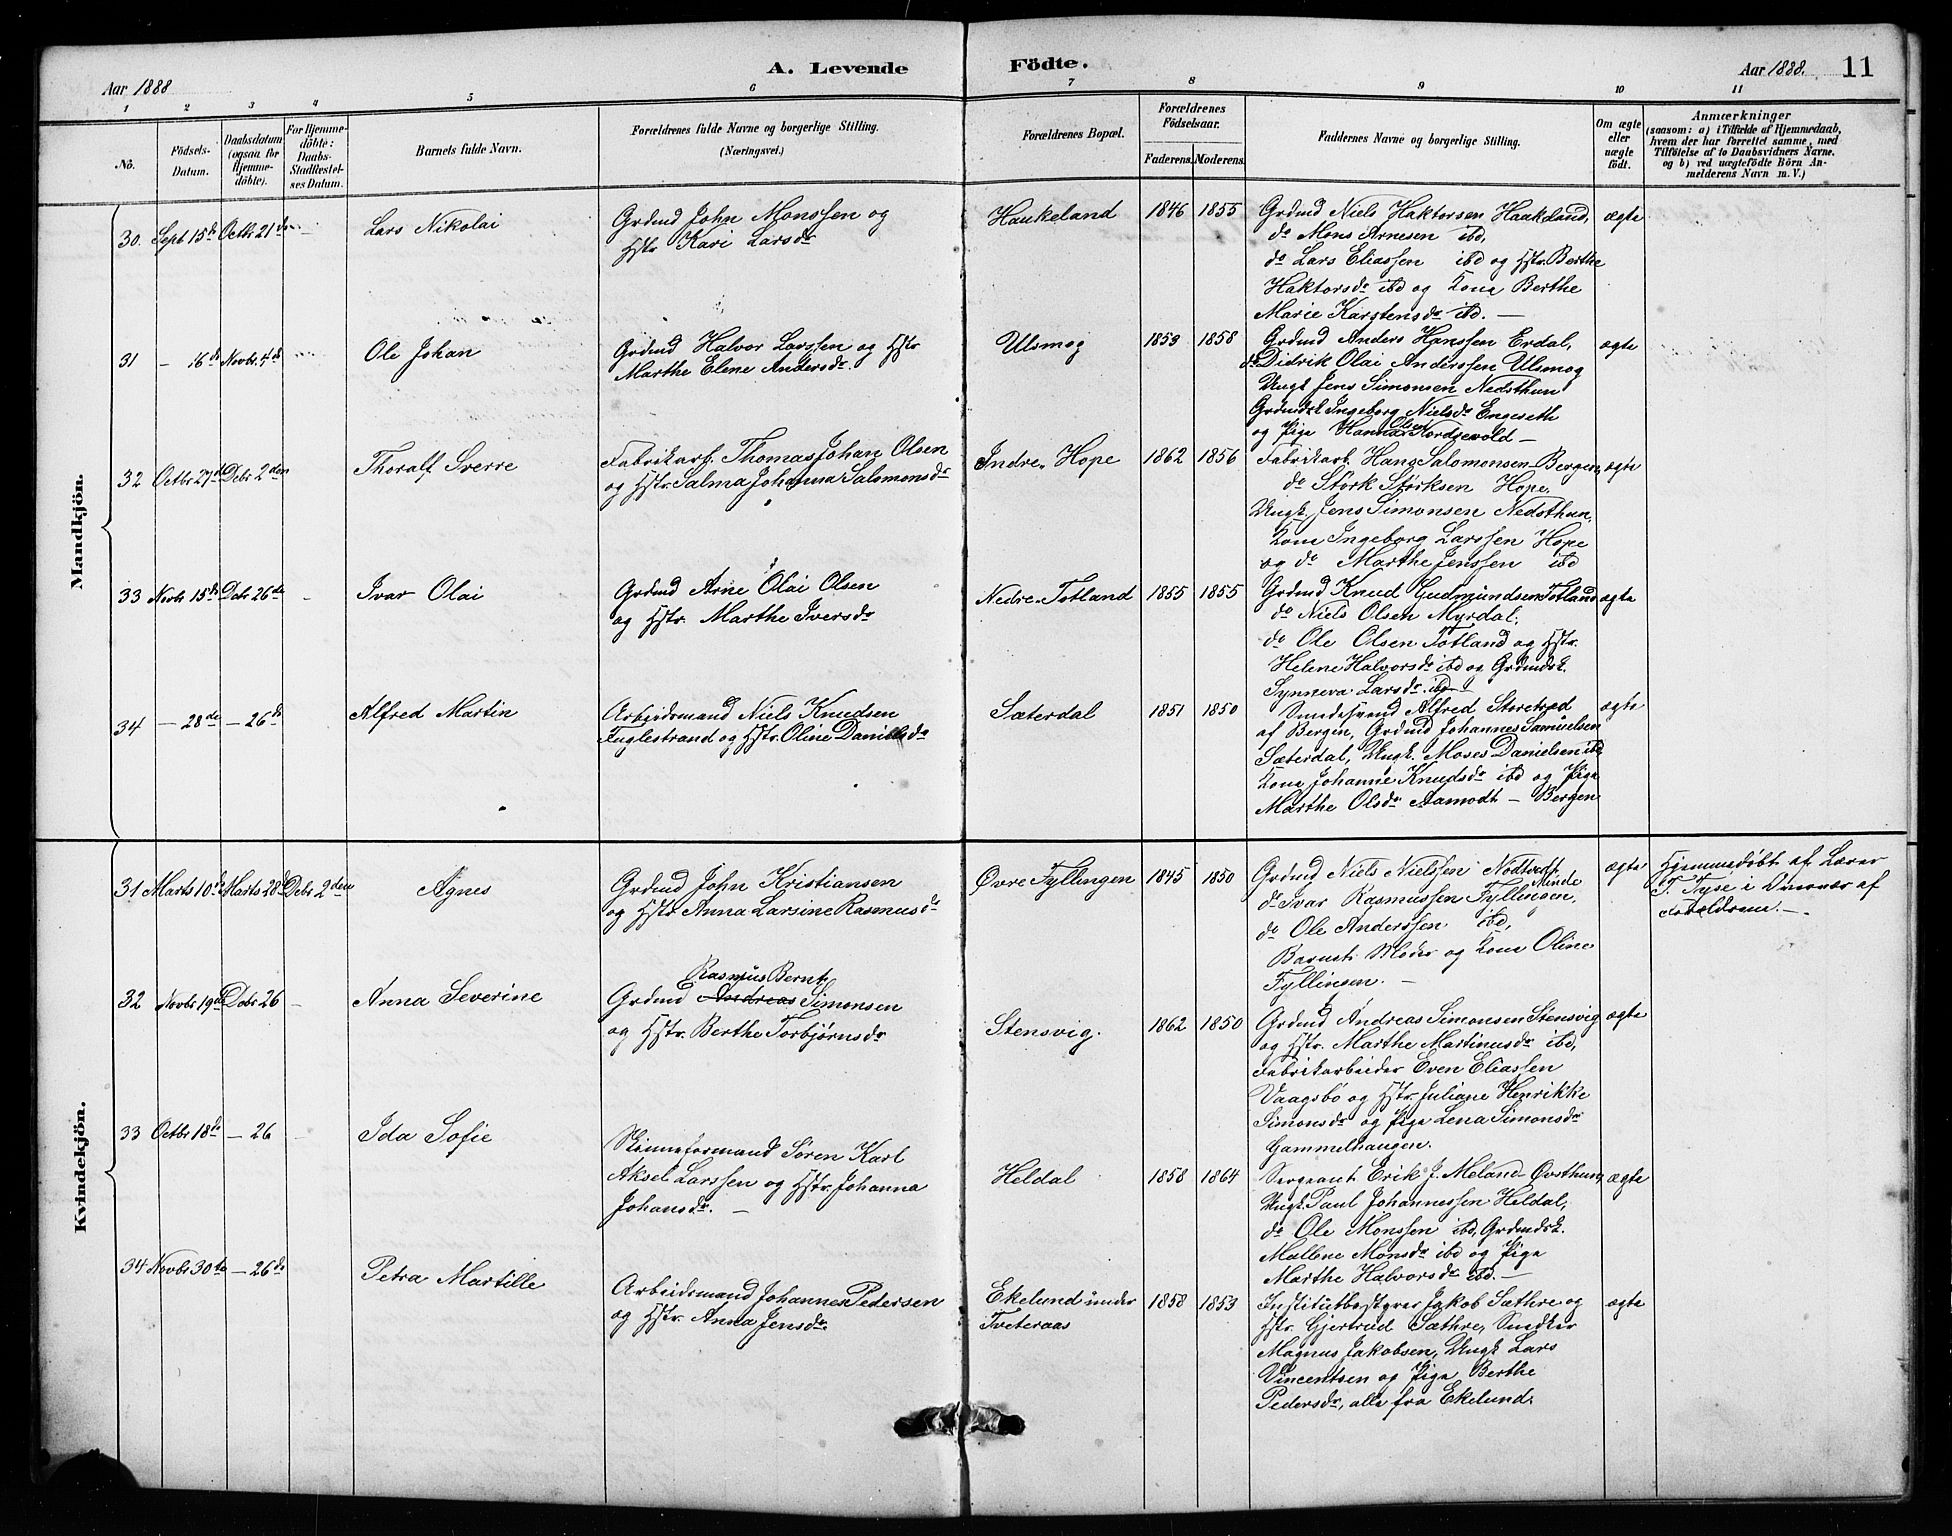 Aar 1888
A. Levende Födte.
Aar 1888. 11
1 2 3 4 5 6 7 8 9 10 11
No.
Födsels-
Datum.
Daabsdatum
(ogsaa for
Hjemme-
döbte).
For Hjemme-
döbte:
Daabs-
Stadfæstel-
ses Datum.
Barnets fulde Navn.
Forældrenes fulde Navne og borgerlige Stilling.
(Næringsvei.)
Forældrenes Bopæl.
Forældrenes
Födselsaar.
Faderens. Moderens.
Faddernes Navne og borgerlige Stilling.
Om ægte
eller
uægte
födt.
Anmærkninger
(saasom: a) i Tilfælde af Hjemmedaab,
hvem der har forrettet samme, med
Tilföielse af to Daabsvidners Navne.
og b) ved uægtefödte Börn An-
melderens Navn m. V.)
Mandkjön.
30. Sept 15de Octbr 21de
Lars Nikolai
Grdmd John Monssen og
Hstr Kari Larsdr
Haukeland 1846 1855
Grdmd Niels Haktorsen Haakeland,
do Mons Arnesen ibd,
do Lars Eliassen ibd og Hstr. Berthe
Haktorsdr ibd og Kona Berthe
Marie Karstensdr ibd. —
ægte
31 — 16de Novbr. 4de
Ole Johan
Grdmd Halvor Larssen og Hstr
Marthe Elene Andersdr
Ulsmog 1853 1858
Grdmd Anders Hanssen Erdal,
do Didrik Olai Anderssen Ulsmog
Ungk. Jens Simonsen Nedsthun
Grdmdsk Ingeborg Nielsdr Engeseth
og Pige Hanna Olsen Nordsevold —
ægte
32 Octbr 27de Debr 2den
Thoralf Sverre
Fabrikarb. Thomas Johan Olsen
og Hstr. Salma Johanna Salomonsdr
Indre Hope 1862 1856
Fabrikarb. Hans Salomonsen Bergen,
do Størk Størksen Hope.
Ungk. Jens Simonsen Nedsthun,
Kona Ingeborg Larssen Hope
og do Marthe Jenssen ibd
ægte
33 Novbr 15de Debr 26de
Ivar Olai
Grdmd Arne Olai Olsen
og Hstr. Marthe Iversdr
Nedre Totland 1855 1855
Grdmd Knud Gudmundsen Totland
do Niels Olsen Myrdal.
do Ole Olsen Totland og Hstr.
Helene Halvorsdr ibd og Grdmdsk.
Synneva Larsdr. ibd
ægte
34 — 28de — 26de
Alfred Martin
Arbeidsmand Niels Knudsen
Fuglestrand og Hstr. Oline Danielsdr
Sæterdal 1851 1850
Smedesvend Alfred Storetred
af Bergen, Grdmd Johannes Samuelsen
Sæterdal, Ungk. Moses Danielsen ibd,
Kona Johanne Knudsdr ibd og Pige
Marthe Olsdr Aamodt — Bergen
ægte
Kvindekjön.
31 Marts 10de Marts 28de Debr 2den
Agnes
Grdmd John Kristiansen
og Hstr Anna Larsine Rasmusdr
Øvre Fyllingen 1845 1850
Grdmd Niels Nielsen Nodtvedt
do Ivar Rasmussen Fyllingen, Minde
do Ole Anderssen ibd,
Barnets Moder og Kona Oline
Fyllingen. —
ægte
Hjemmedøbt af Lærer
T. Tyse i Overvær af
Forældrene. —
32 Novbr 19de Debr 26
Anna Severine
Rasmus Bernt
Grdmd Andreas Simonsen
og Hstr. Berthe Torbjørnsdr
Stensvig. 1862 1850
Grdmd Andreas Simonsen Stensvig
og Hstr. Marthe Martinusdr ibd,
Fabrikarbeider Even Eliassen
Vaagsbø og Hstr. Juliane Henrikke
Simonsdr og Pige Lena Simonsdr
Gammelhaugen.
ægte
33 Octbr 18de — 26
Ida Sofie
Skinneformand Søren Karl
Aksel Larssen og Hstr. Johanna
Johansdr. —
Heldal 1858 1864
Sergeant Erik J. Meland Øvsthun,
Ungk. Paul Johannessen Heldal,
do Ole Monssen ibd, Grdmdsk.
Mallene Monsdr ibd og Pige
Marthe Halvorsdr ibd. —
ægte
34 Novbr 30te — 26de
Petra Martille
Arbeidsmand Johannes Pedersen
og Hstr. Anna Jensdr.
Ekelund under
Tveteraas
1858 1853
Institutbestyrer Jakob Sæthre og
Hstr. Gjertrud Sæthre, Snedker
Magnus Jakobsen, Ungk Lars
Vincentsen og Pige Berthe
Pedersdr, alle fra Ekelund.
ægte